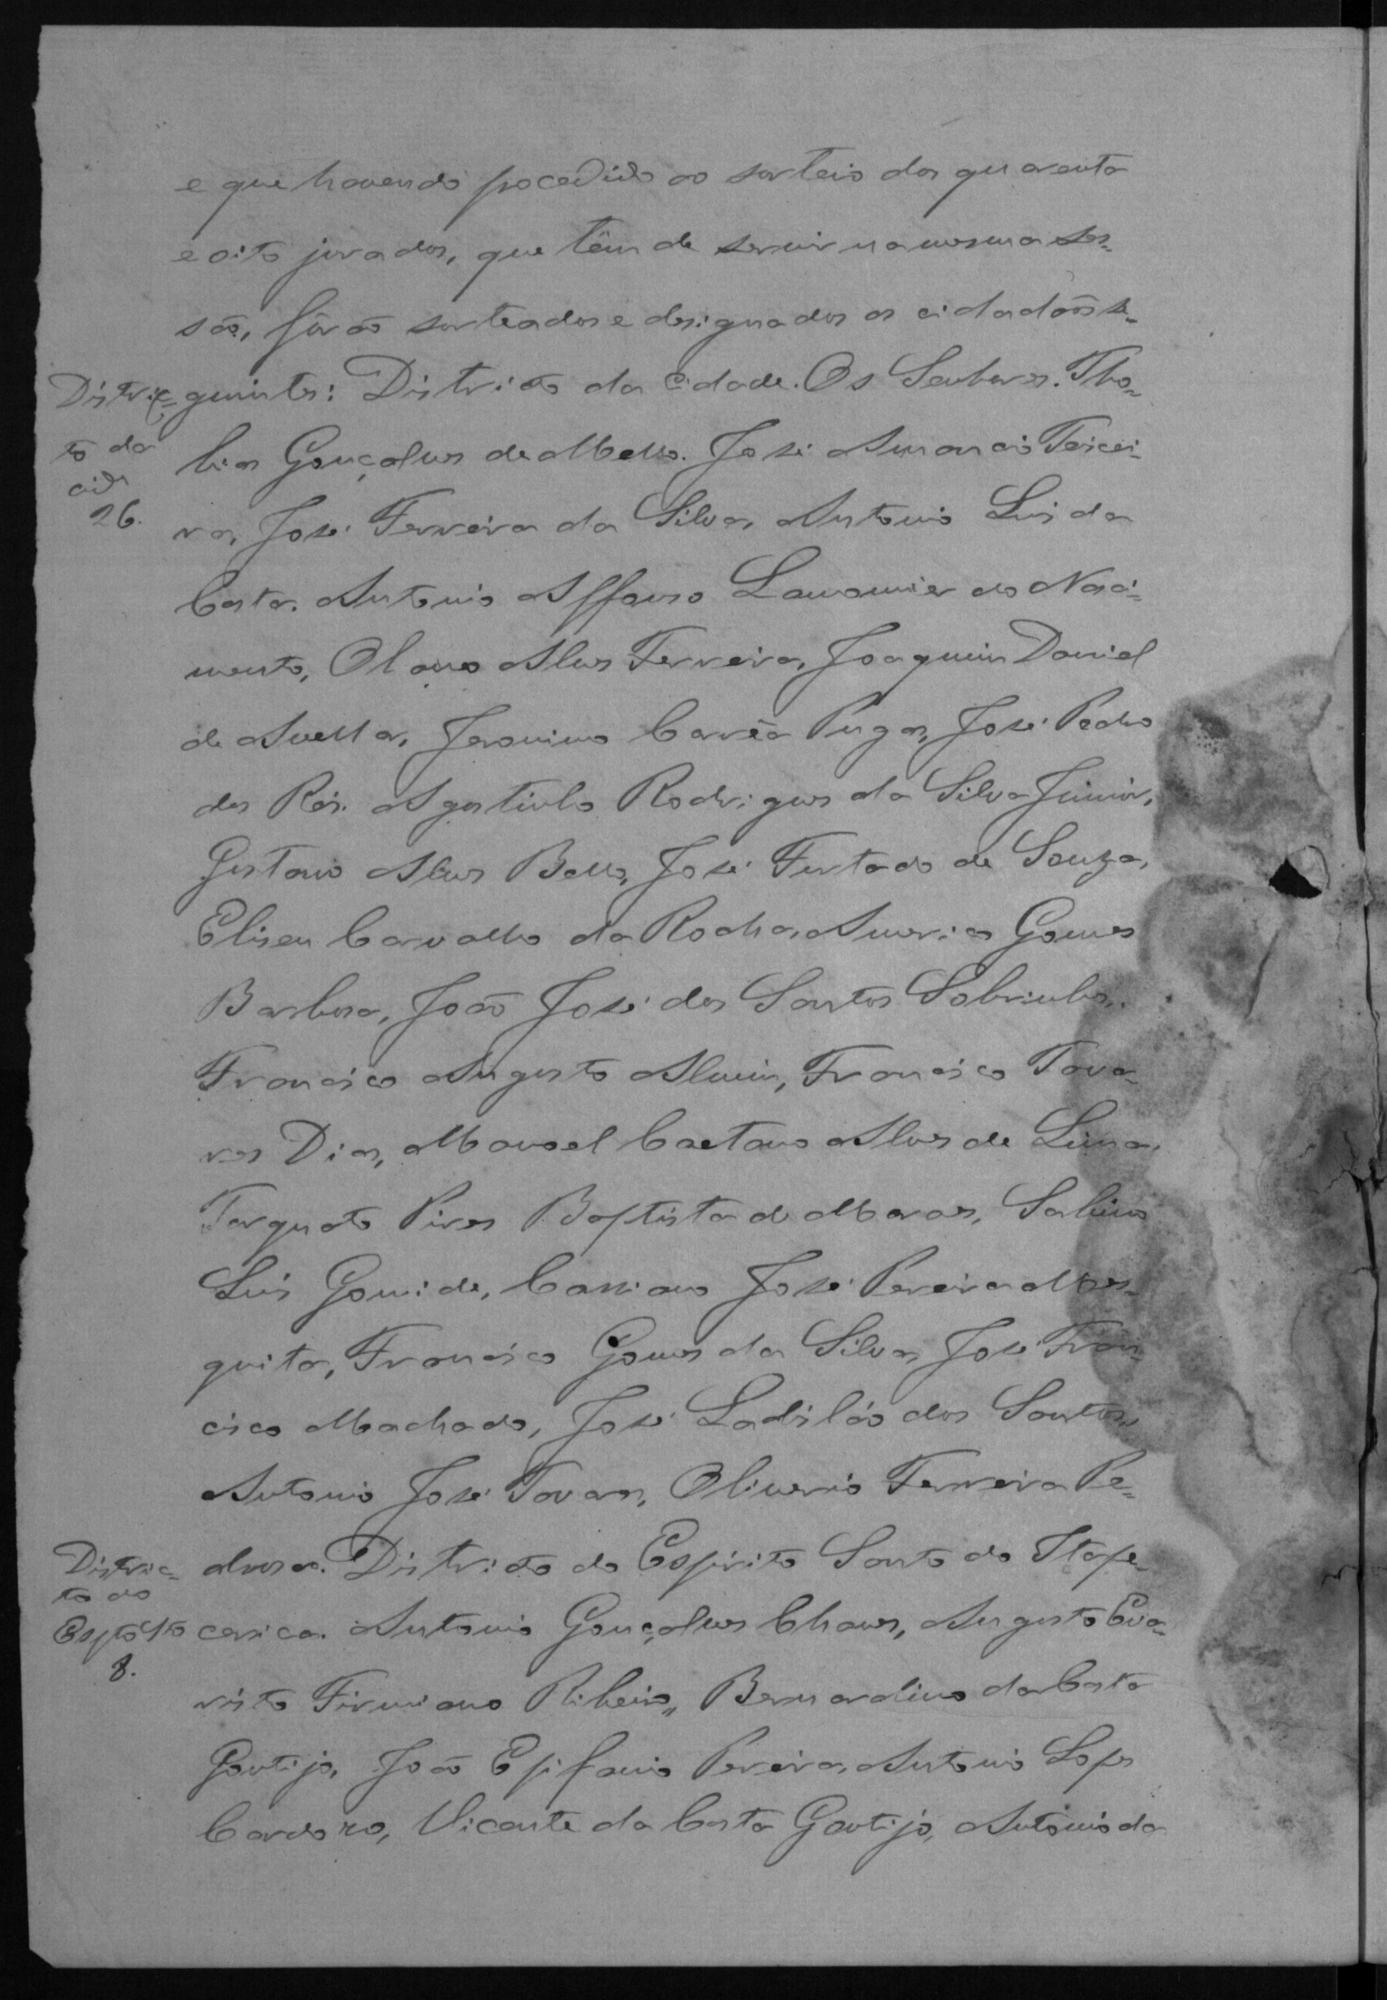 e que havendo pocedido ao sorteio dos quarenta
e oito jurados, que têm de servir na mesma ses-
são, fôrão sorteados e designados os cidadãos se-
Distric-
to da
cid.
26.
guintes: Districto da Cidade. Os Senhores. Tho-
bias Gonçalves de Mello. José Amancio Teixei-
ra, José Ferreira da Silva, Antonio Luis da
Costa. Antonio Affonso Lamounier do Nasci-
mento, Olavo Alves Ferreira, Joaquim Daniel
de Avellar, Jeronimo Corrêa Puga, José Pedro
dos Reis. Agostinho Rodrigues da Silva Junior,
Gustavo Alves Bello, José Furtado de Souza,
Eliseu Carvalho da Rocha, Americo Gomes
Barbosa, João José dos Santos Sobrinho,
Francisco Augusto Alvim, Francisco Tava-
res Dias, Manoel Caetano Alves de Lima,
Torquato Pires Baptista de Moraes, Sabino
Luis Gomide, Cassiano José Pereira Mes-
quita, Francisco Gomes da Silva, José Fran-
cisco Machado, José Ladisláo dos Santos,
Antonio José Tavares, Oliverio Ferreira Pe-
Distric-
to do
Espto Sto
8.
drosa. Districto do Espirito Santo do Itape-
cerica. Antonio Gonçalves Chaves, Augusto Eva-
risto Firmiano Ribeiro, Bernardino da Costa
Gontijo, João Epifanio Pereira, Antonio Lopes
Cardoso, Vicente da Costa Gontijo, Antonio da